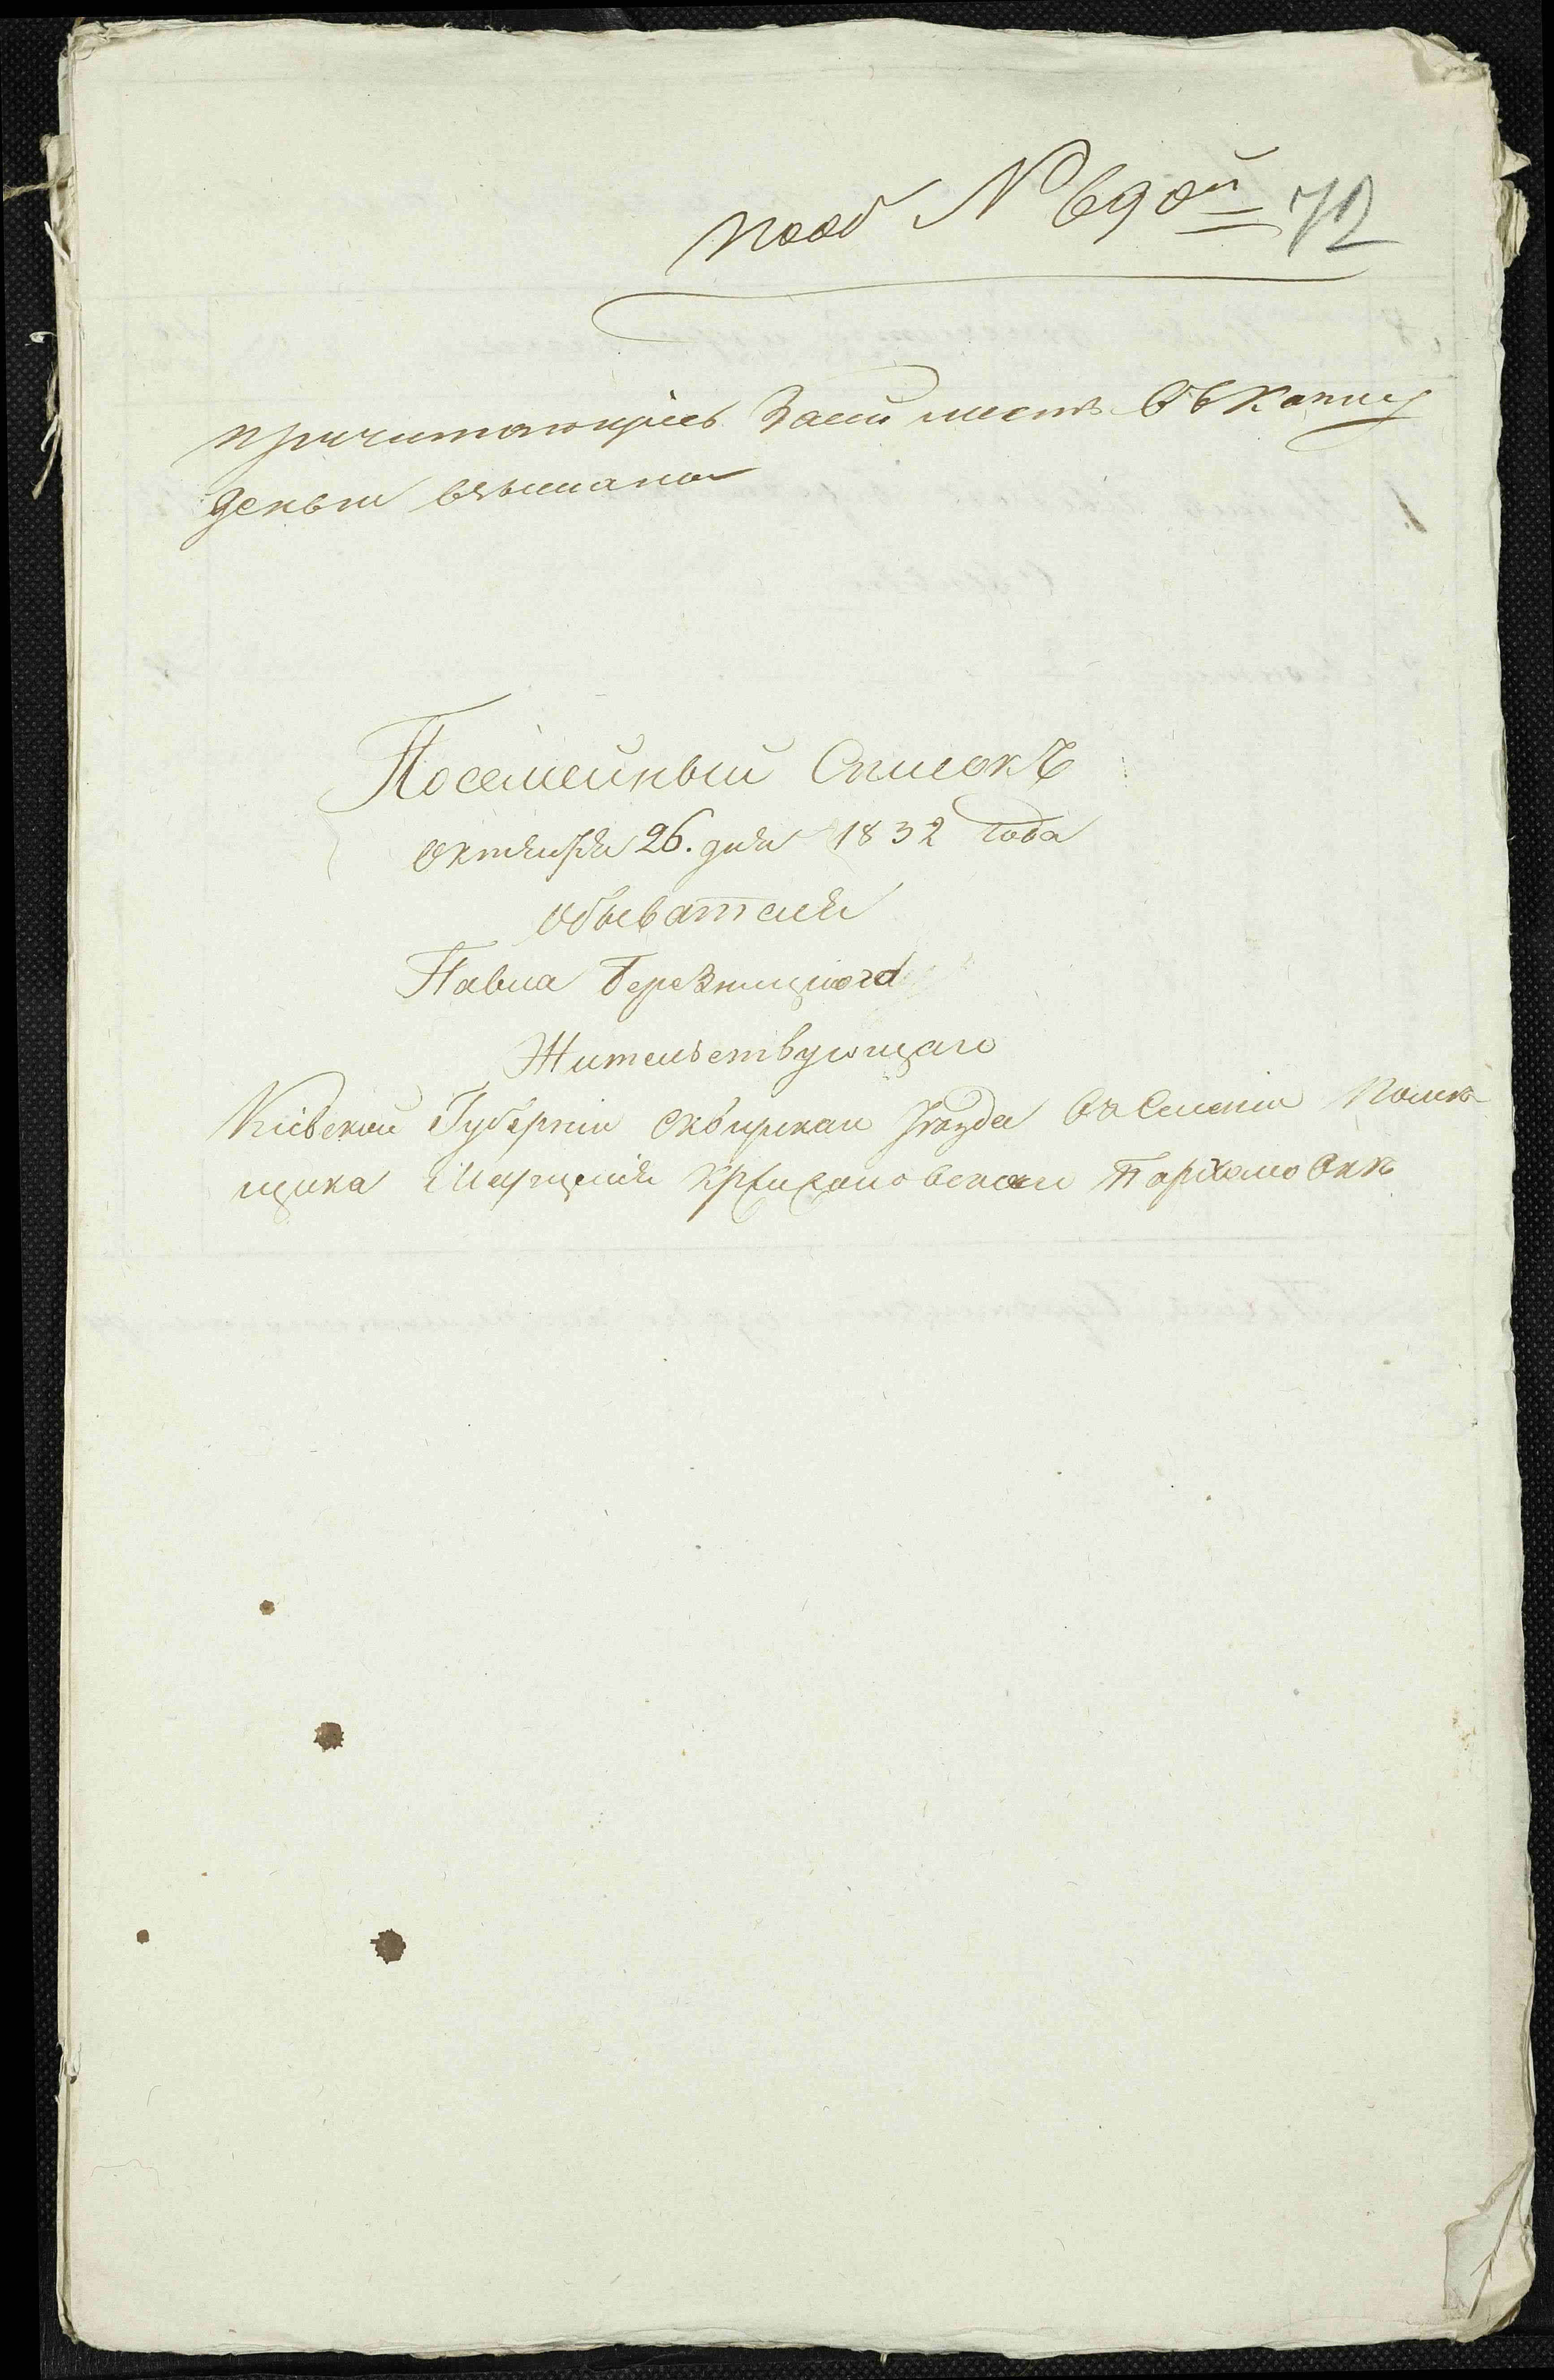 подъ № 690й 72
причитающіесь за сей листъ въ казну
деньги взысканы
Посемейный Списокъ
октября 26. дня 1832 года
обывателя
Павла Березницкого
Жительствующаго
Кіевской Губерніи Сквирскаго уезда въ Селеніи Поме-
щика Крыжановскаго Пархомовкъ